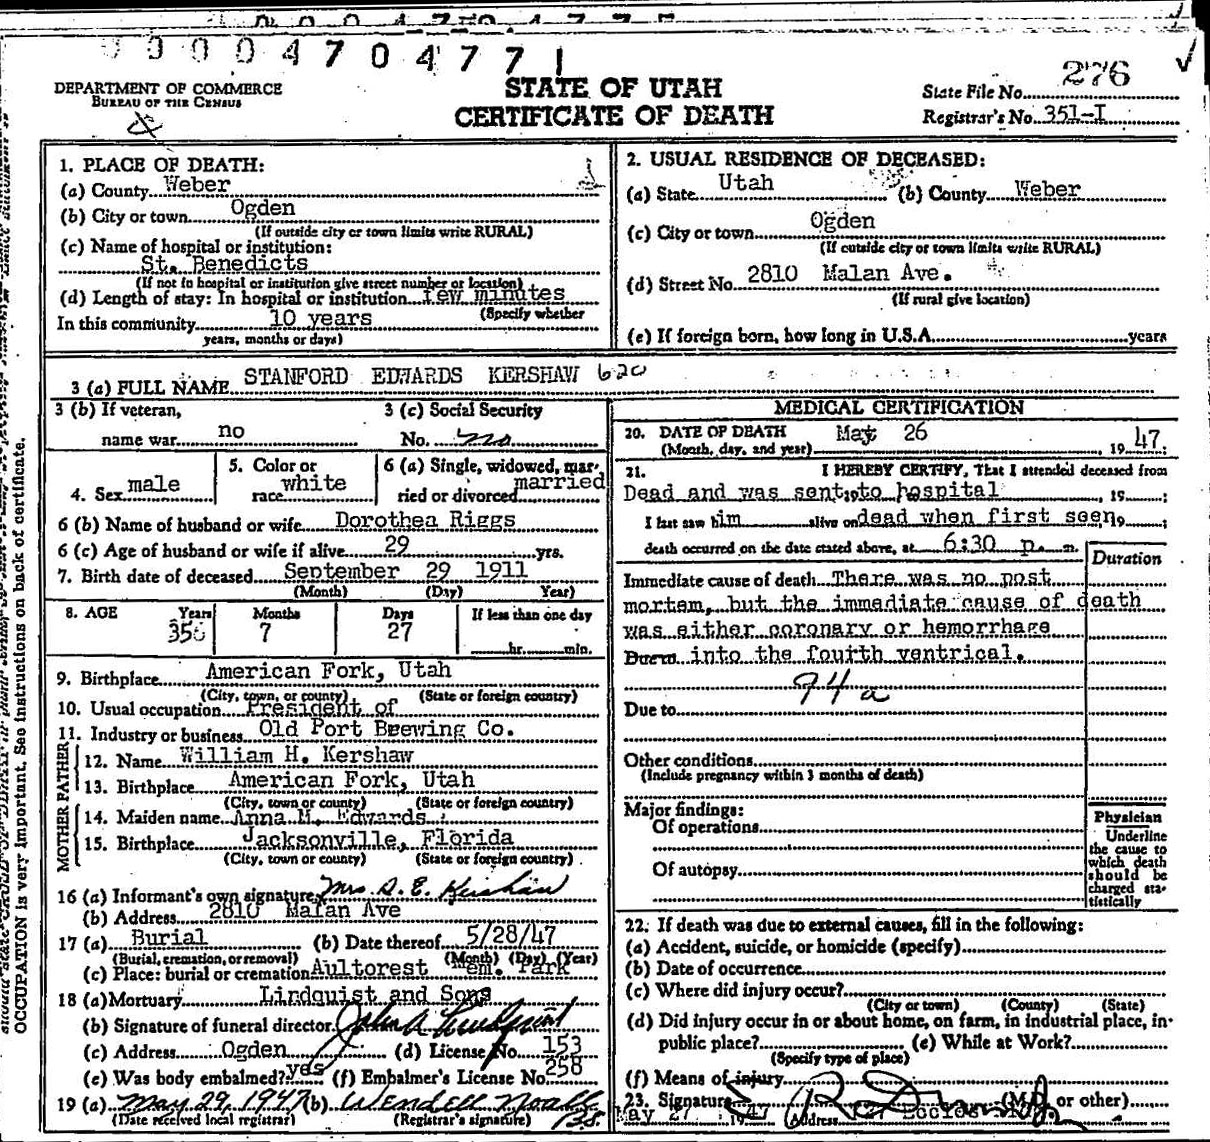 0000470477
STATE OF UTAH
CERTIFICATE OF DEATH
DEPARTMENT OF COMMERCE
BUREAU OF THE CENSUS
State File No. 276
Registrar's No. 351-I
1. PLACE OF DEATH:
(a) County Weber
(b) City or town Ogden
(If outside city or town limits write RURAL)
(c) Name of hospital or institution:
St. Benedicts
(If not in hospital or institution give street number or location)
(d) Length of stay: In hospital or institution few minutes
(Specify whether
In this community 10 years
years, months or days)
2. USUAL RESIDENCE OF DECEASED:
(a) State Utah (b) County Weber
(c) City or town Ogden
(If outside city or town limits write RURAL)
(d) Street No. 2810 Malan Ave.
(If rural give location)
(e) If foreign born, how long in U.S.A. years
3 (a) FULL NAME STANFORD EDWARDS KERSHAW 620
3 (b) If veteran, name war no
3 (c) Social Security No. no
4. Sex male
5. Color or race white
6 (a) Single, widowed, married or divorced married
6 (b) Name of husband or wife Dorothea Riggs
6 (c) Age of husband or wife if alive 29 yrs.
7. Birth date of deceased September 29 1911
(Month) (Day) Year)
8. AGE Years Months Days If less than one day
35 7 27 hr. min.
9. Birthplace American Fork, Utah
(City, town, or county) (State or foreign country)
10. Usual occupation President of
11. Industry or business Old Port Brewing Co.
FATHER
12. Name William H. Kershaw
13. Birthplace American Fork, Utah
(City, town or county) (State or foreign country)
MOTHER
14. Maiden name Anna M. Edwards
15. Birthplace Jacksonville, Florida
(City, town or county) (State or foreign country)
16 (a) Informant's own signature Mrs. S. E. Kershaw
(b) Address 2810 Malan Ave
17 (a) Burial (b) Date thereof 5/28/47
(Burial, cremation, or removal) (Month) (Day) (Year)
(c) Place: burial or cremation Aultorest Mem. Park
18 (a) Mortuary Lindquist and Sons
(b) Signature of funeral director John A Lindquist
(c) Address Ogden (d) License No. 153
(e) Was body embalmed? yes (f) Embalmer's License No. 258
19 (a) May 29, 1947 (b) Wendell Noall
(Date received local registrar) (Registrar's signature)
MEDICAL CERTIFICATION
20. DATE OF DEATH May 26 1947
(Month, day, and year)
21. I HEREBY CERTIFY, That I attended deceased from
Dead and was sent to hospital, 19 ;
I last saw him alive on dead when first seen, 19 ;
death occurred on the date stated above, at 6:30 p. m.
Duration
Immediate cause of death There was no post
mortem, but the immediate cause of death
was either coronary or hemorrhage
into the fourth ventrical.
94a
Due to
Other conditions
(Include pregnancy within 3 months of death)
Major findings:
Of operations
Of autopsy
Physician
Underline
the cause to
which death
should be
charged sta-
tistically
22. If death was due to external causes, fill in the following:
(a) Accident, suicide, or homicide (specify)
(b) Date of occurrence
(c) Where did injury occur?
(City or town) (County) (State)
(d) Did injury occur in or about home, on farm, in industrial place, in
public place? (e) While at Work?
(Specify type of place)
(f) Means of injury
23. Signature (M.D. or other)
May 27 1947 Address Eccles
OCCUPATION is very important. See instructions on back of certificate.